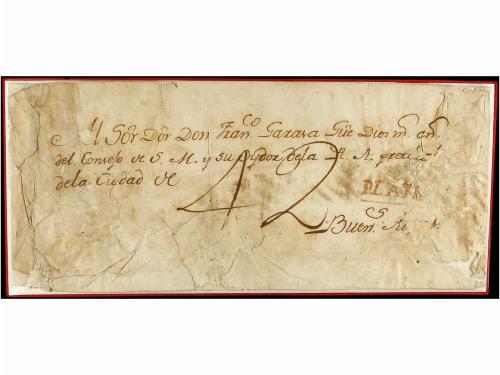 Al Sor Dor Don Franco Garasa Gûe Dios ms as
del Consejo de S. M. y su Oydor de la R. A.
de la Ciudad de
42
Buens